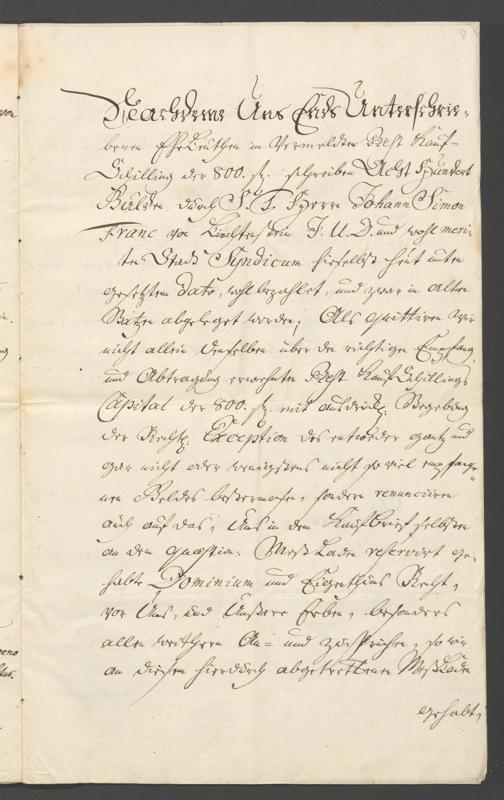 8
Nachdeme Uns Ends Unterschrie-
benen EheLeuthen in Vermeldter Rest Kauf-
Schilling der 800. fl. schreiben Acht Hundert
Gulden durch S. T. Herrn Johann Simon
Franc von Liechtenstein J. U. D. und wohl meri-
ten Stadt Syndicum hieselbst heut unten
gesetztem dato, wohl bezahlet, und zwar in alten
Batzen abgeleget worden; Als quittiren Wir
nicht allein denselben über den richtigen Empfang
und Abtragung erwehnten Rest Kauf Schillings
Capital der 800. fl. mit ausdrückl. Begebung
der Rechtl. Exception des entweder gantz und
gar nicht oder wenigstens nicht so viel empfange-
nen Geldes bester masen, sondern renunciiren
auch auf das, Uns in dem Kaufbrief selbsten
an dem quæstion. Meß Laden reservirt ge-
habte Dominium und Eigenthums Recht,
vor Uns, und Unßere Erben, besonders
allen weithern An- und zuSprüchen, so wir
an diesen hierdurch abgetrettenen MeßLaden
gehabt,